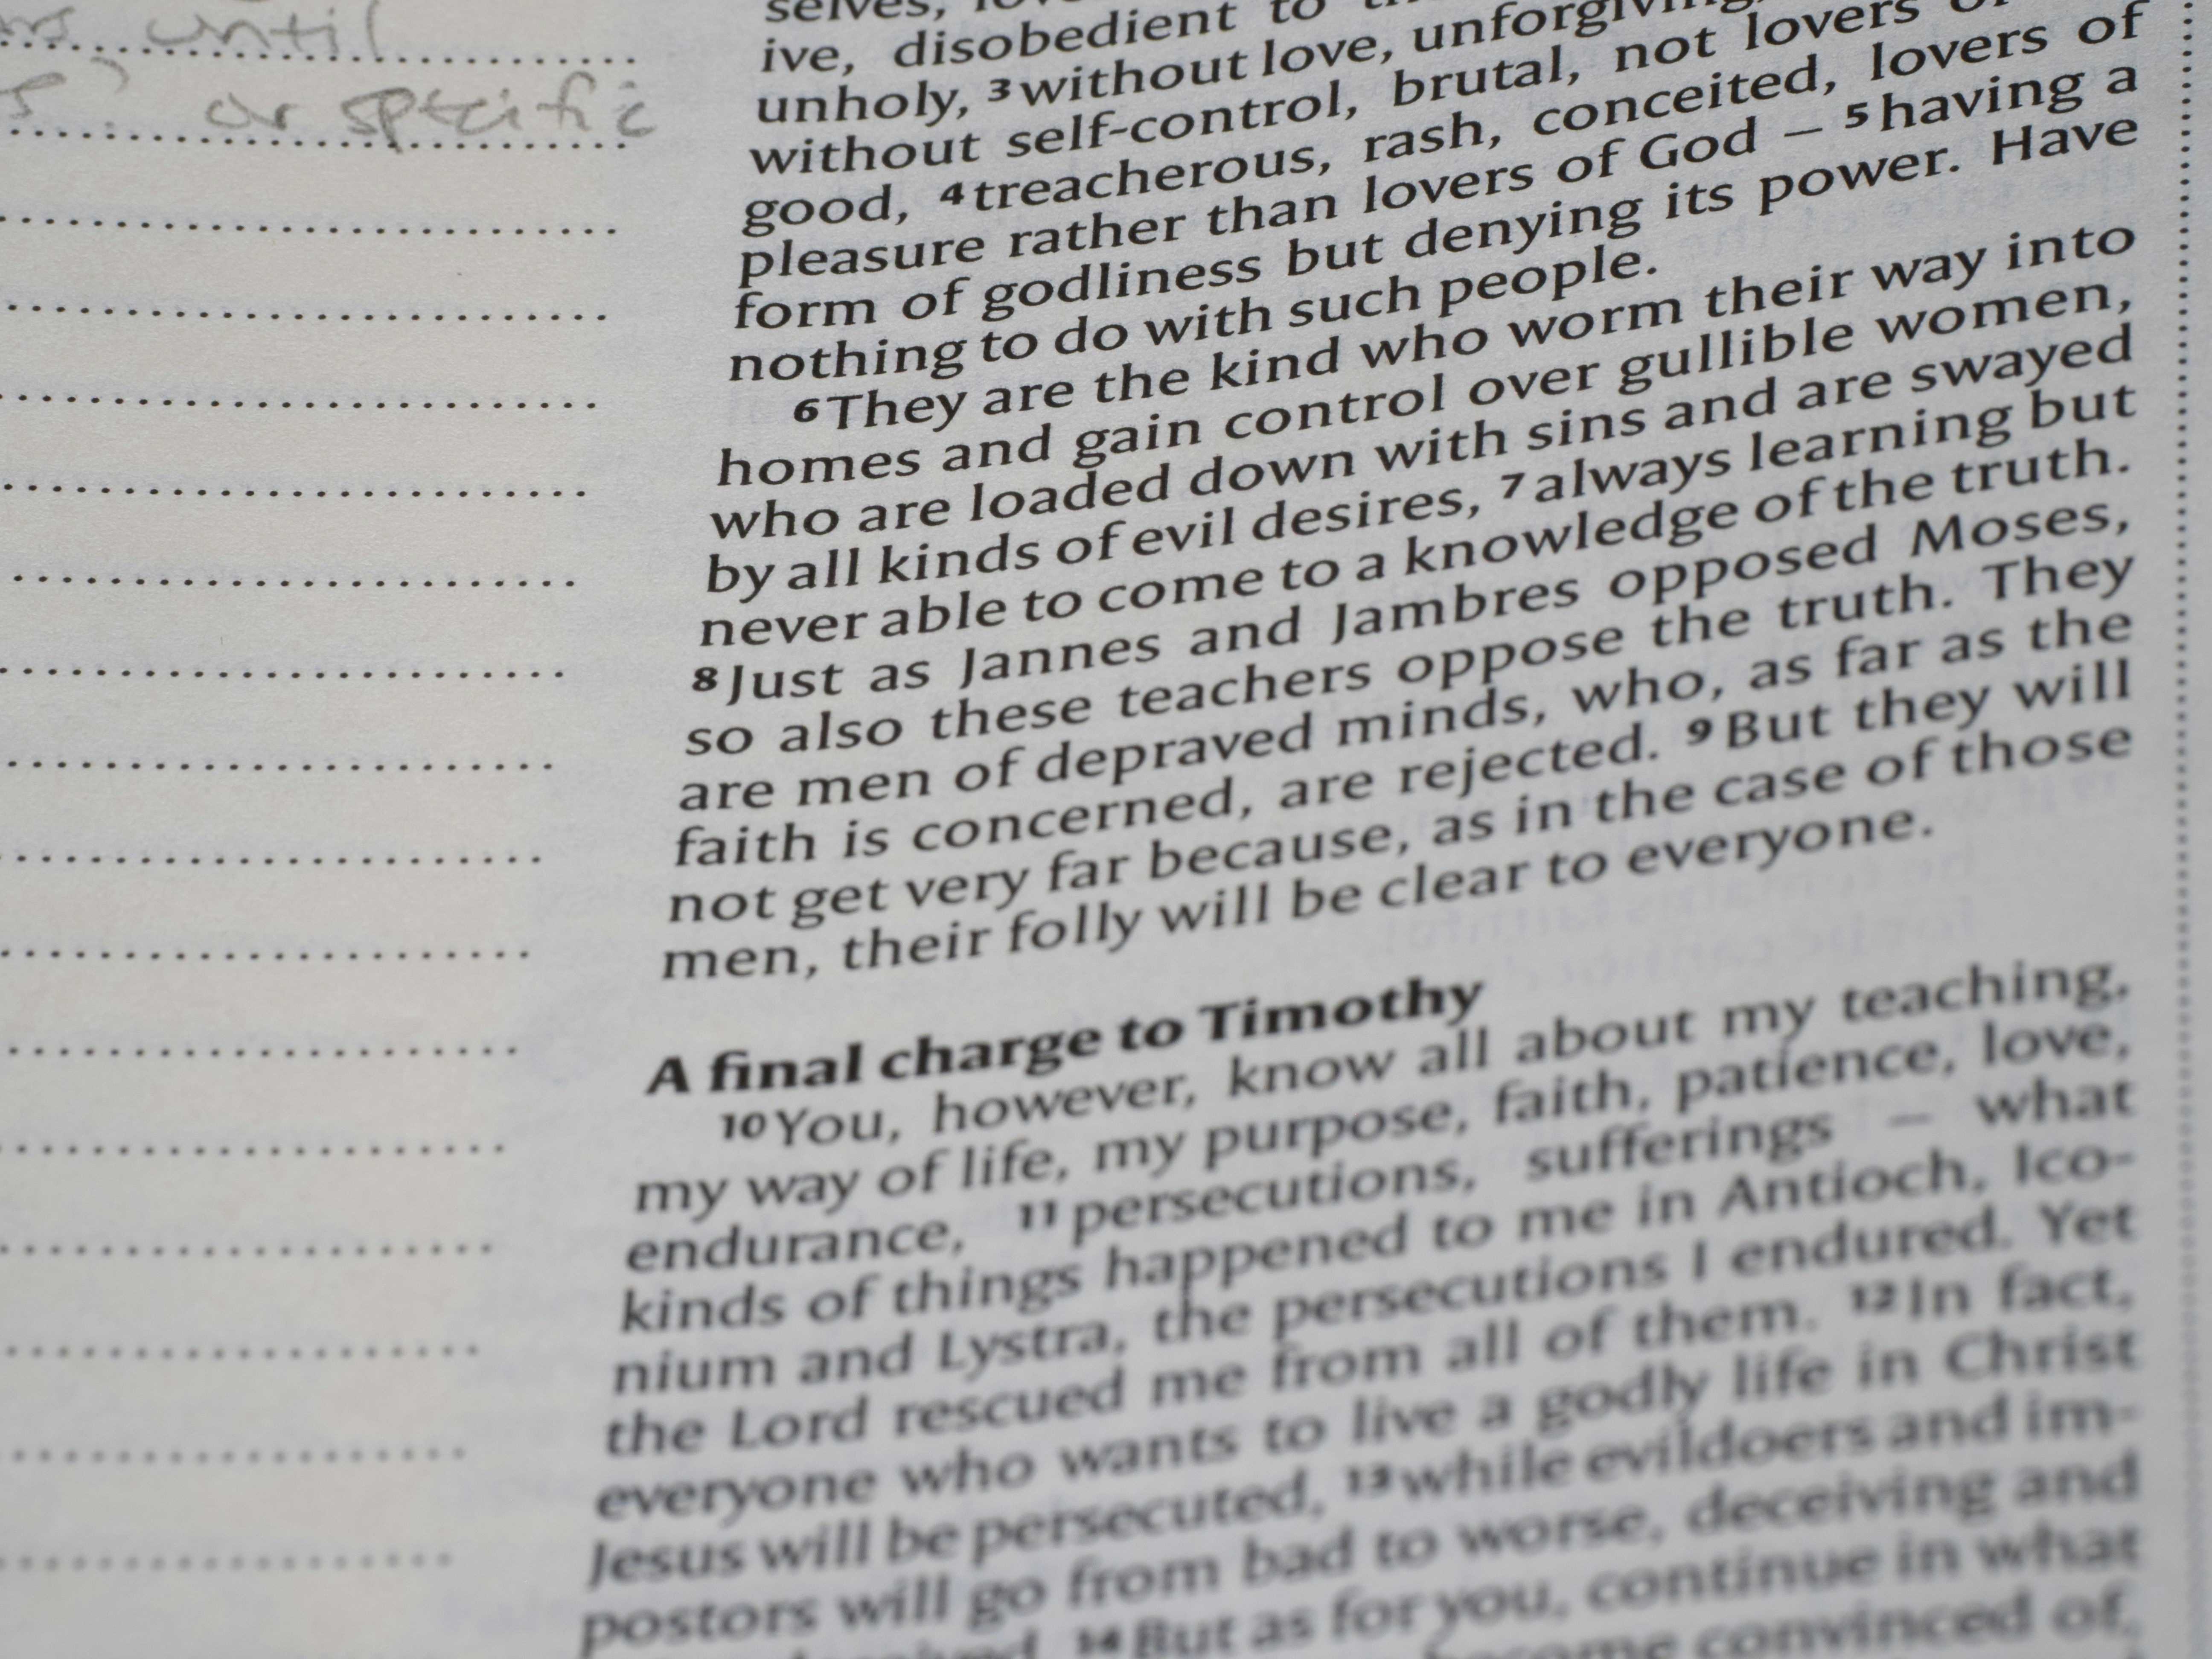 until
or specific
selves,
ive, disobedient to
unholy, 3 without love, unforgiving,
without self-control, brutal, not lovers
good, 4 treacherous, rash, conceited, lovers of
pleasure rather than lovers of God – 5 having a
form of godliness but denying its power. Have
nothing to do with such people.
6 They are the kind who worm their way into
homes and gain control over gullible women,
who are loaded down with sins and are swayed
by all kinds of evil desires, 7 always learning but
never able to come to a knowledge of the truth.
8 Just as Jannes and Jambres opposed Moses,
so also these teachers oppose the truth. They
are men of depraved minds, who, as far as the
faith is concerned, are rejected. 9 But they will
not get very far because, as in the case of those
men, their folly will be clear to everyone.
A final charge to Timothy
10 You, however, know all about my teaching,
my way of life, my purpose, faith, patience, love,
endurance, 11 persecutions, sufferings – what
kinds of things happened to me in Antioch, Ico-
nium and Lystra, the persecutions I endured. Yet
the Lord rescued me from all of them. 12 In fact,
everyone who wants to live a godly life in Christ
Jesus will be persecuted, 13 while evildoers and im-
postors will go from bad to worse, deceiving and
14 But as for you, continue in what
convinced of,